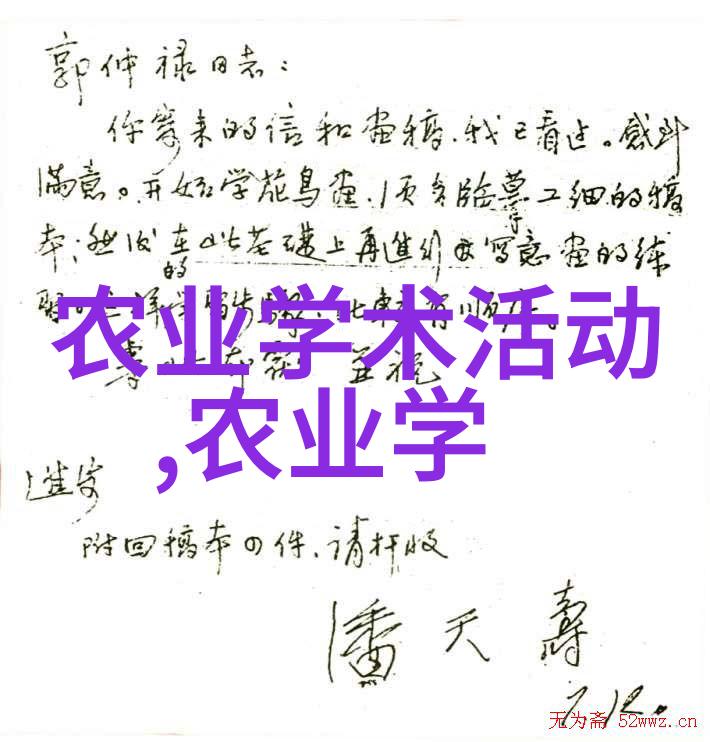 郭仲禄同志:
你寄来的信和画稿,我已看过。感到
满意。开始学花鸟画,须多临摹工细的稿
本;然后在此基础上再进行写意画的练
的
农业学术活动
,农业学
并祝
进安
附回稿本四件,请检收
潘天寿
7.12.
无为斋 52wwz.cn